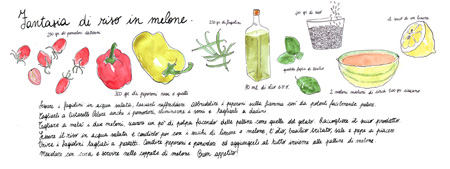 Fantasia di riso in melone.
250 gr di pomodori datterini
300 gr di peperoni rossi e gialli
150 gr di fagiolini
80 ml di olio e.v.o.
quattro foglie di basilico
200 gr di riso
il succo di un limone
2 meloni maturi di circa 700 gr ciascuno
Lavare i fagiolini in acqua salata, lasciarli raffreddare. Abbrustolire i peperoni sulla fiamma così da poterli facilmente pelare.
Tagliarli a listarelle. Pelare anche i pomodori, eliminarne i semi e tagliarli a dadini.
Tagliare a metà i due meloni, usare un po' di polpa facendo delle palline come quelle del gelato. Raccogliere il succo prodotto
Lessare il riso in acqua salata e condirlo poi con i succhi di limone e melone, l'olio, basilico tritato, sale e pepe a piacere
Unire i fagiolini tagliati a pezzetti. Condire peperoni e pomodori ed aggiungerli al tutto insieme alle palline di melone.
Mescolare con cura e servire nelle coppette di melone. Buon appetito!